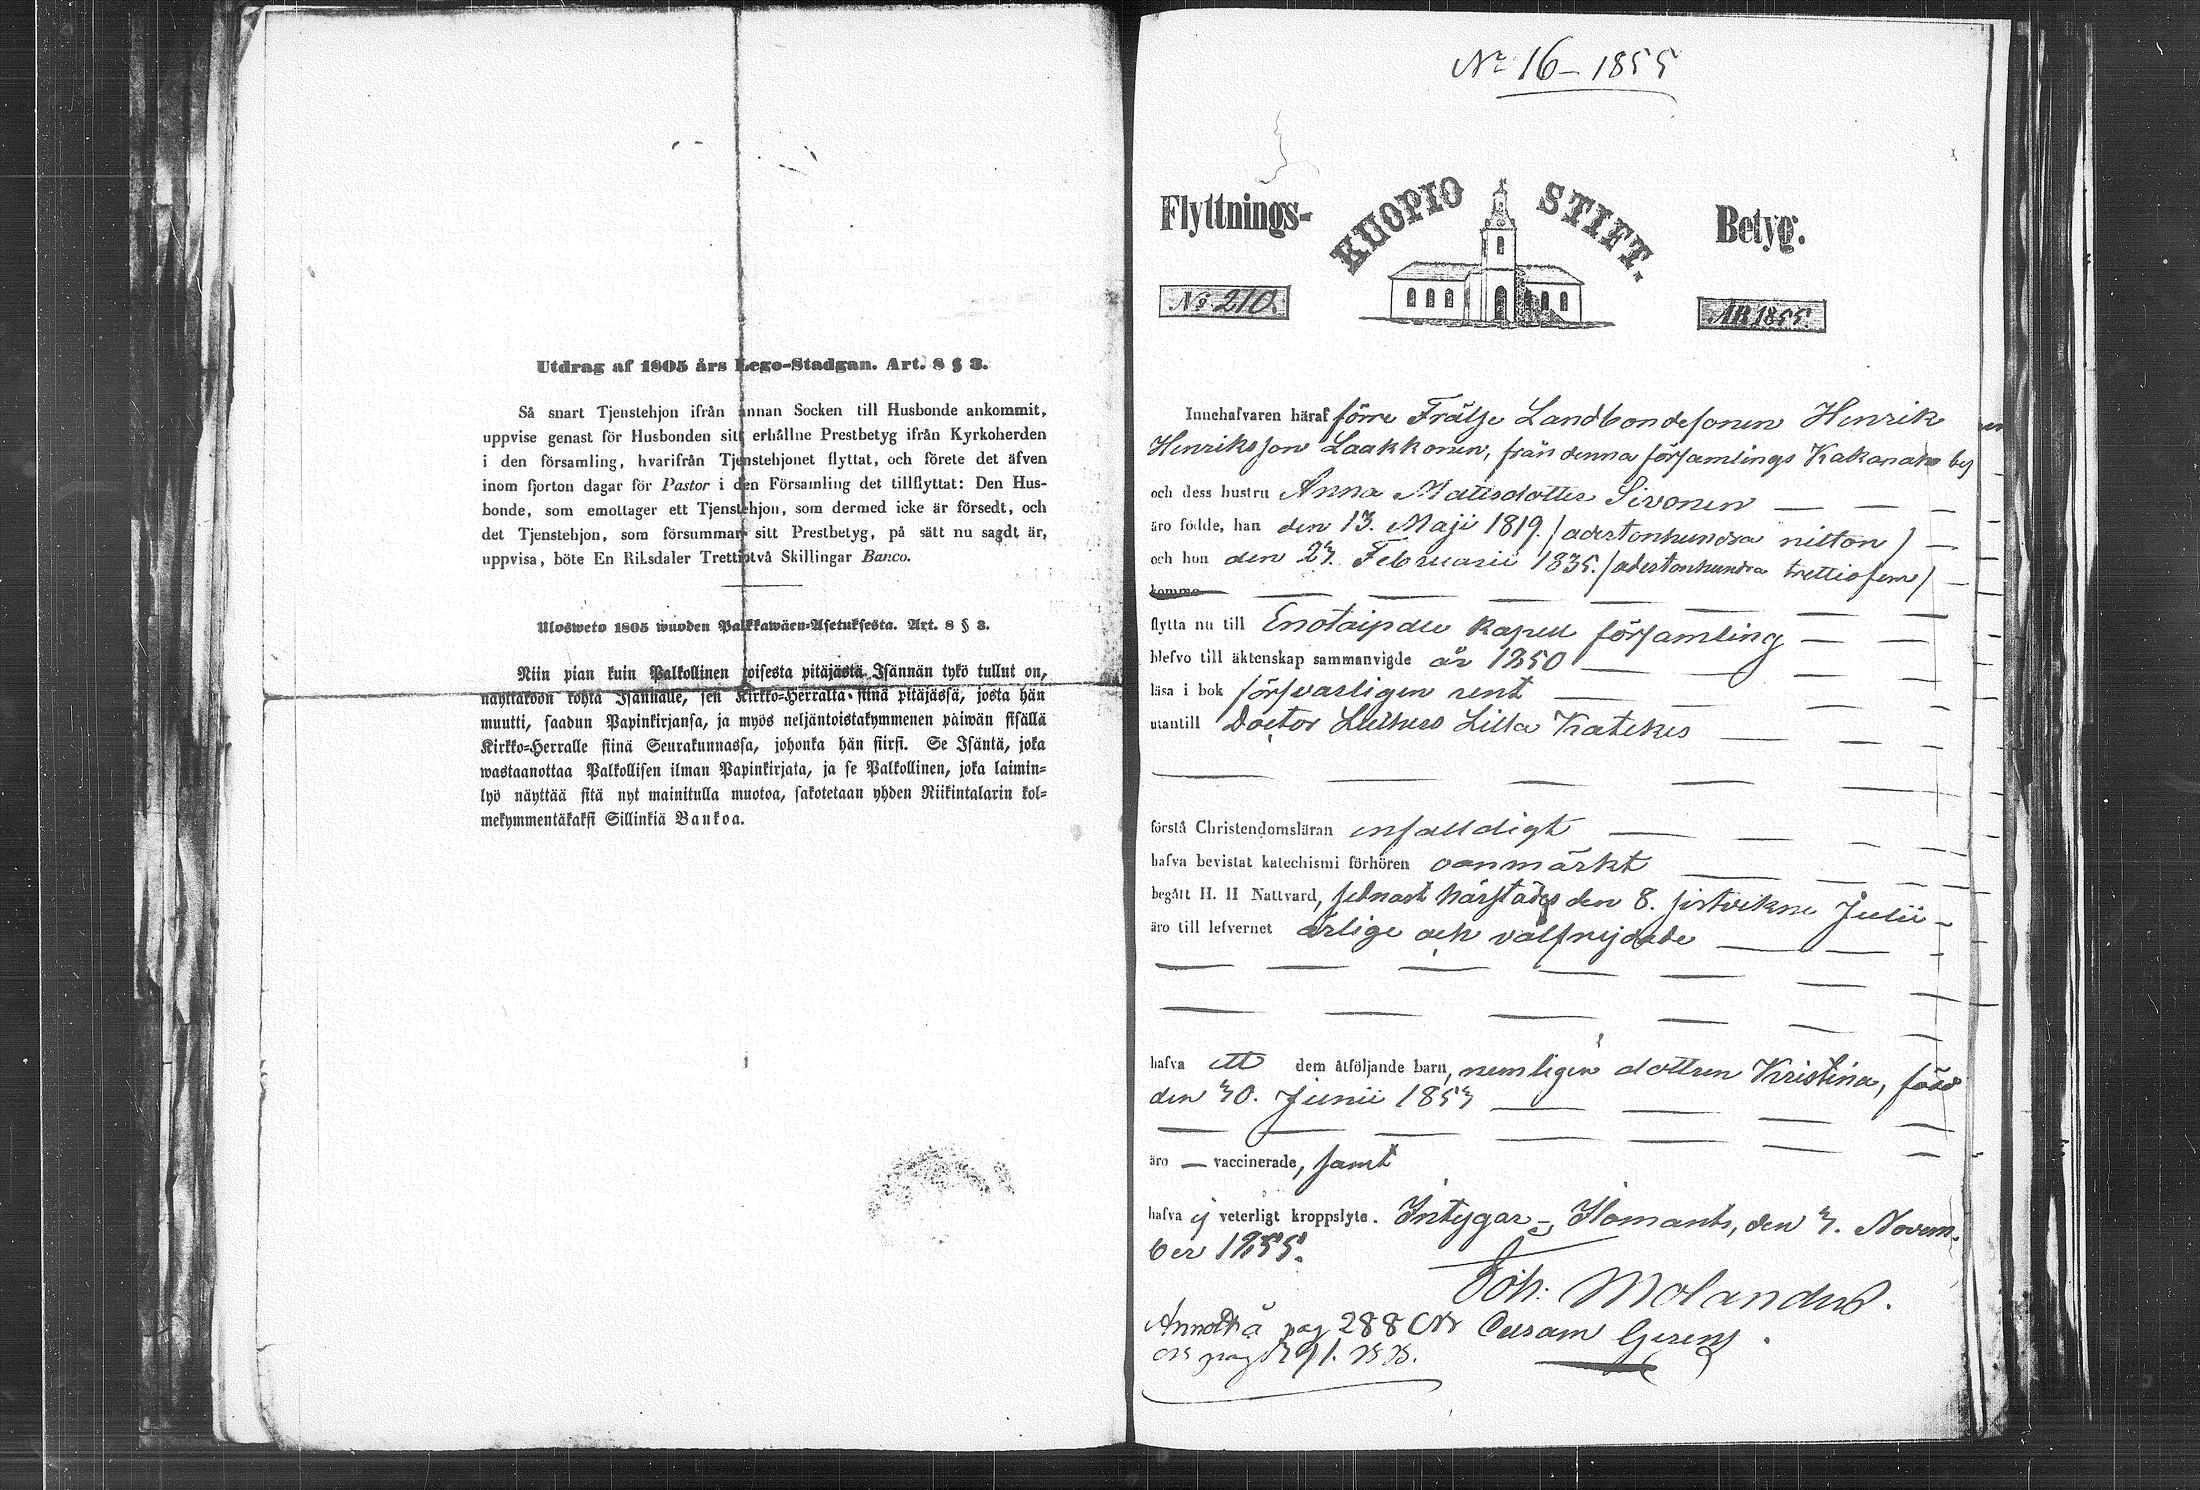 Utdrag af 1805 års Lego-Stadgan. Art. 8 § 3.
Så snart Tjenstehjon ifrån annan Socken till Husbonde ankommit,
uppvise genast för Husbonden sitt erhållne Prestbetyg ifrån Kyrkoherden
i den församling, hvarifrån Tjenstehjonet flyttat, och förete det äfven
inom fjorton dagar för Pastor i den Församling det tillflyttat: Den Hus-
bonde, som emottager ett Tjenstehjon, som dermed icke är försedt, och
det Tjenstehjon, som försummar sitt Prestbetyg, på sätt nu sagdt är,
uppvisa, böte En Riksdaler Trettiotvå Skillingar Banco.
Ulosweto 1805 wuoden Palkkawäen-Asetuksesta. Art. 8 § 3.
Niin pian kuin Palkollinen toisesta pitäjästä Isännän tykö tullut on,
näyttäköön kohta Isännälle, sen Kirkko-Herralta siinä pitäjässä, josta hän
muutti, saadun Papinkirjansa, ja myös neljäntoistakymmenen päiwän sisällä
Kirkko-Herralle siinä Seurakunnassa, johonka hän siirsi. Se Isäntä, joka
wastaanottaa Palkollisen ilman Papinkirjata, ja se Palkollinen, joka laimin-
lyö näyttää sitä nyt mainitulla muotoa, sakotetaan yhden Riikintalarin kol-
mekymmentäkaksi Sillinkiä Bankoa.
No 16 - 1855
Flyttnings- KUOPIO STIFT. Betyg.
No 210. ÅR 1855
Innehafvaren häraf förre Frälse Landbondesonen Henrik
Henriksson Laakkonen, från denna församlings Kakonaho by
och dess hustru Anna Matisdotter Sivonen
äro födde, han den 13. Maji 1819. / adertonhundra nitton /
och hon den 23. Februarii 1835. / adertonhundra trettiofem /
komma
flytta nu till Enotaipale Kapell församling
blefvo till äktenskap sammanvigde år 1850
läsa i bok försvarligen rent
utantill Doctor Luthers Lilla Katekes
förstå Christendomsläran enfalldigt
hafva bevistat katechismi förhören oanmärkt
begått H. H Nattvard, sednast härstädes den 8. sistvikne Julii
äro till lefvernet ärlige och välfrejdade
hafva ett dem åtföljande barn, nemligen dottren Kristina, född
den 30. Junii 1853
äro — vaccinerade, samt
hafva ej veterligt kroppslyte. Intygar - Ilomants, den 3. Novem-
ber 1855.
Joh: Molander.
Annot. å pag 288 Curam Gerens.